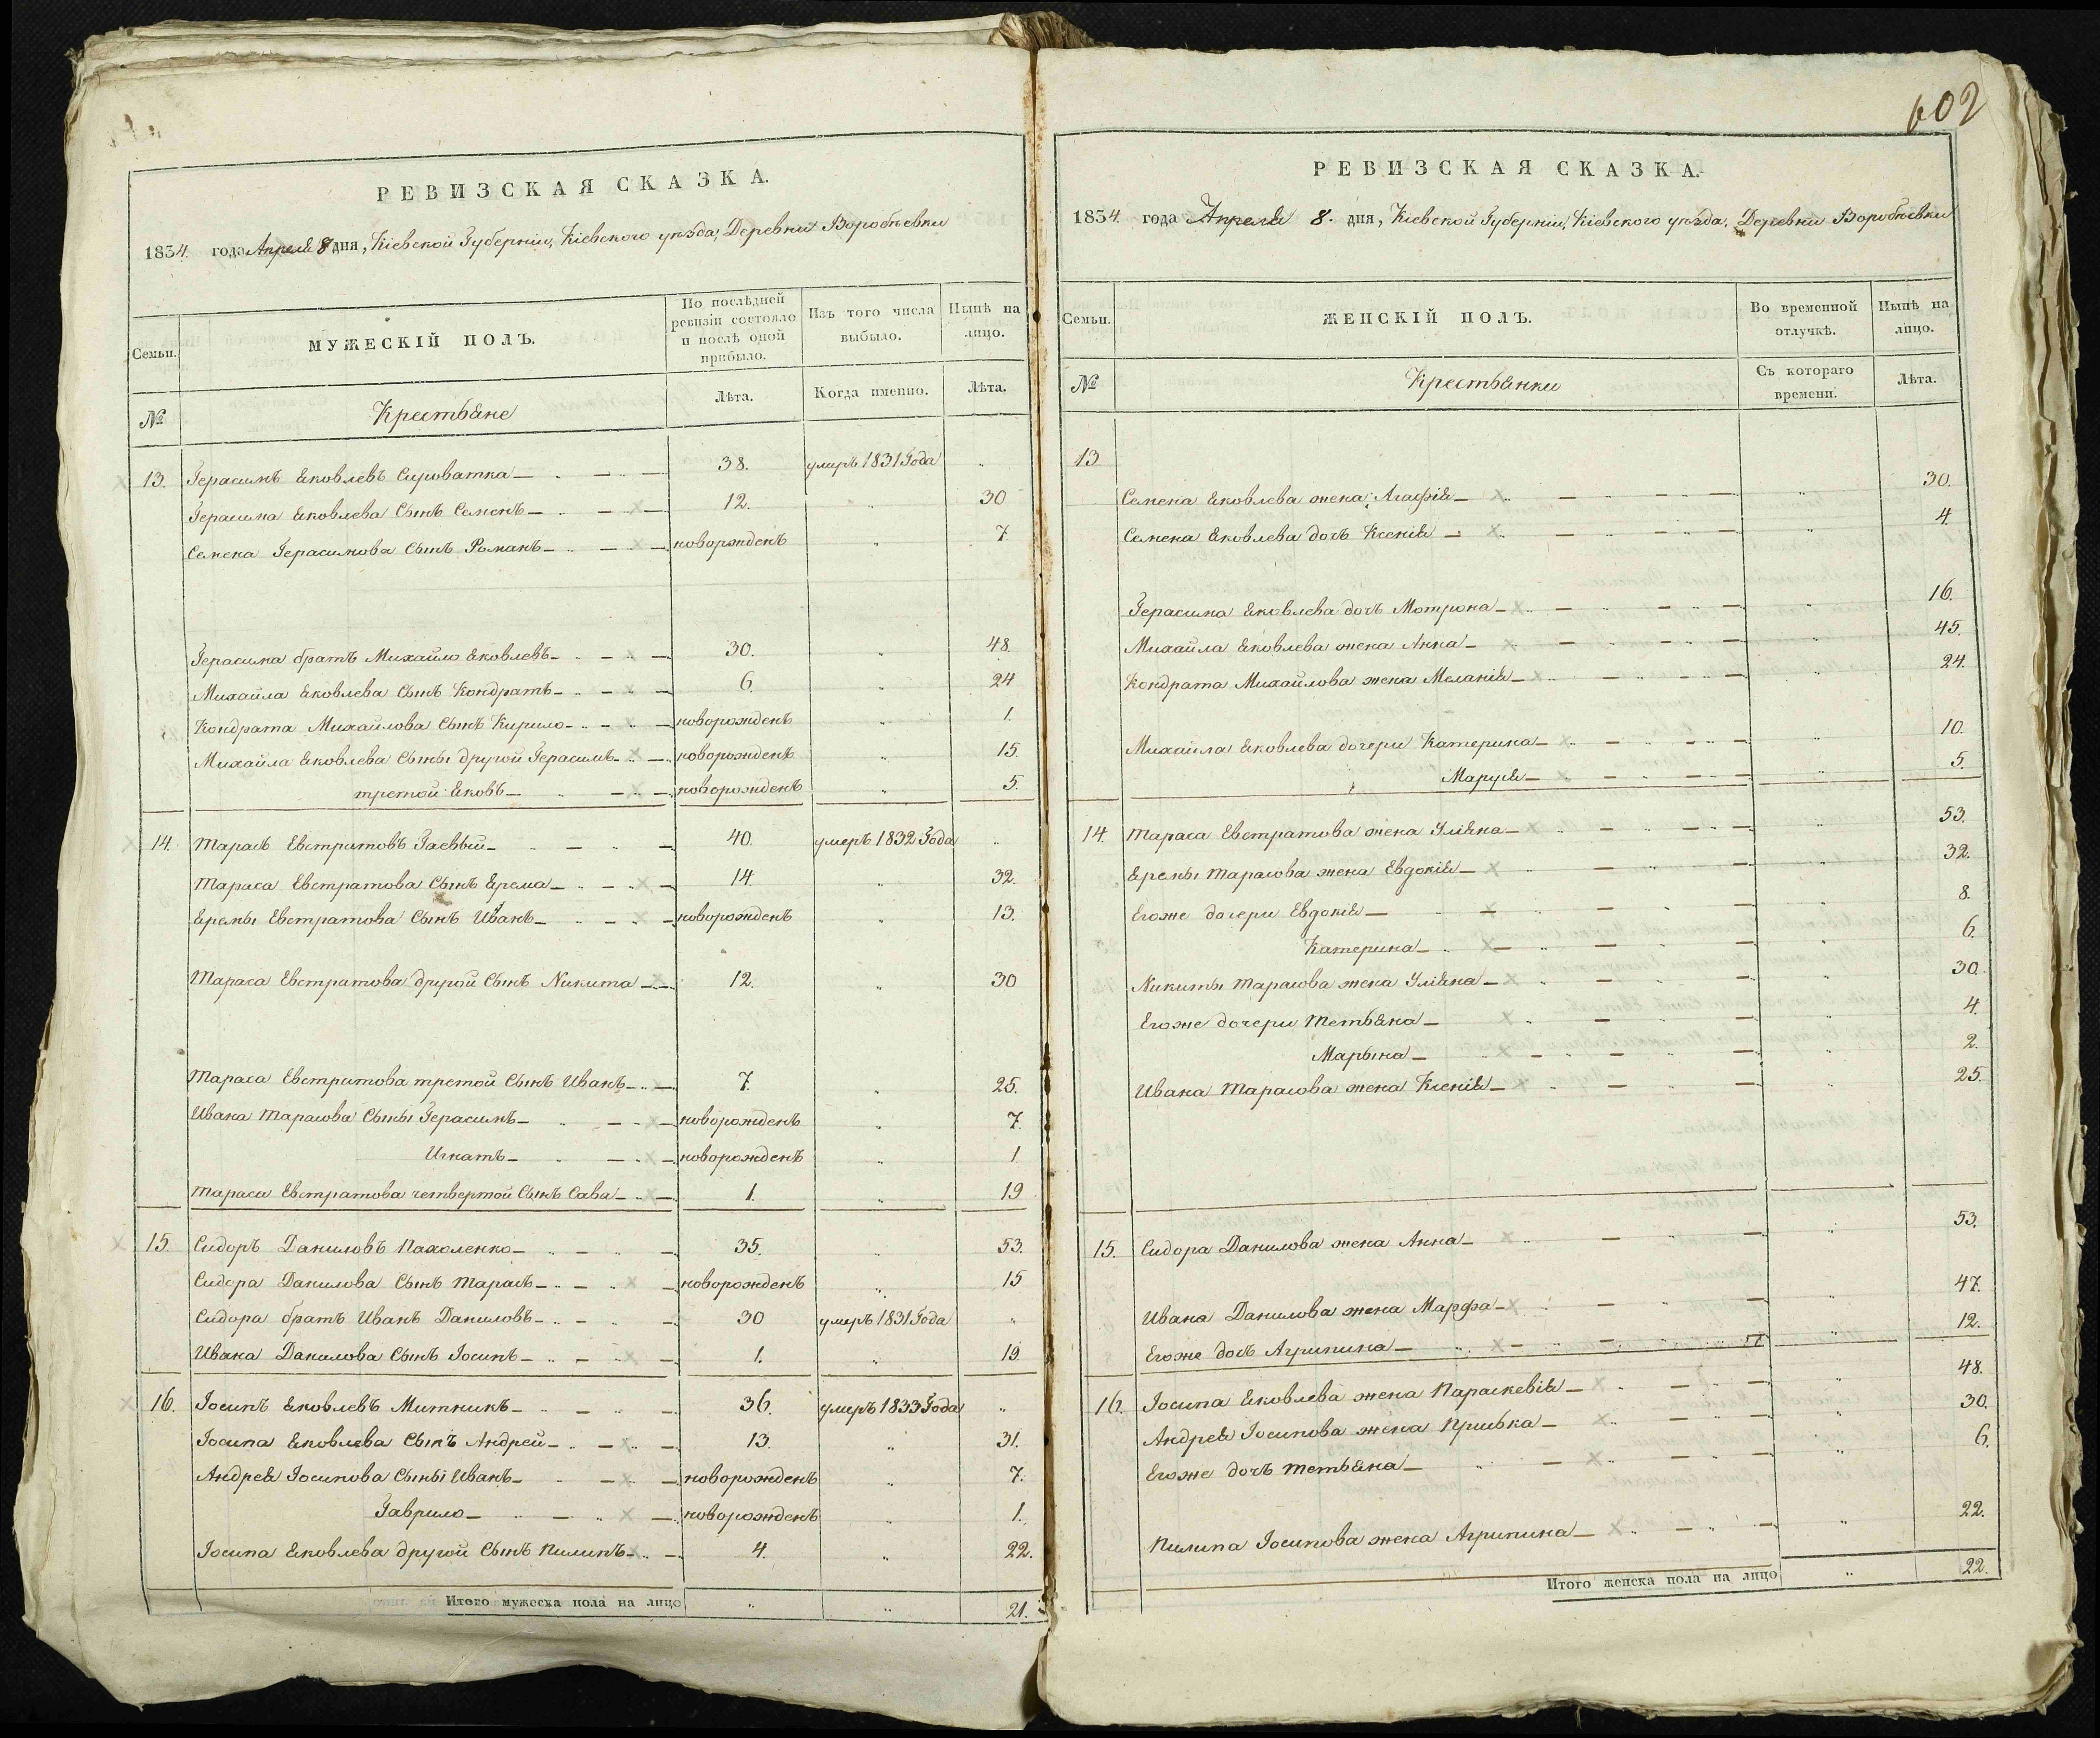 РЕВИЗСКАЯ СКАЗКА.
1834. года Апреля 8 дня, Кіевской Губерніи, Кіевского уѣзда, Деревни Воробѣевки
Семьи.
МУЖЕСКІЙ ПОЛЪ.
По послѣдней ревизіи состояло и послѣ оной прибыло.
Изъ того числа выбыло.
Нынѣ на лицо.
№
Крестьяне
Лѣта.
Когда именно.
Лѣта.
13. Герасимъ Яковлевъ Сироватка 38. умеръ 1831 Года „
Герасима Яковлева Сынъ Семенъ 12. „ 30
Семена Герасимова Сынъ Романъ новорожденъ „ 7
Герасима братъ Михайло Яковлевъ 30. „ 48
Михайла Яковлева Сынъ Кондратъ 6. „ 24
Кондрата Михайлова Сынъ Кирило новорожденъ „ 1.
Михайла Яковлева Сыны другой Герасимъ новорожденъ „ 15.
третой Яковъ новорожденъ „ 5.
14. Тарасъ Евстратовъ Гаевый 40. умеръ 1832 Года „
Тараса Евстратова Сынъ Ерема 14. „ 32.
Еремы Евстратова Сынъ Иванъ новорожденъ „ 13.
Тараса Евстратова другой Сынъ Никита 12. „ 30
Тараса Евстратова третой Сынъ Иванъ 7. „ 25.
Ивана Тарасова Сыны Герасимъ новорожденъ „ 7.
Игнатъ новорожденъ „ 1
Тараса Евстратова четвертой Сынъ Сава 1. „ 19
15. Сидоръ Даниловъ Пахоленко 35. „ 53.
Сидора Данилова Сынъ Тарасъ новорожденъ „ 15
Сидора братъ Иванъ Даниловъ 30 умеръ 1831 Года „
Ивана Данилова Сынъ Іосипъ 1. „ 19
16. Іосипъ Яковлевъ Митникъ 36. умеръ 1833 Года „
Іосипа Яковлева Сынъ Андрей 13. „ 31.
Андрея Іосипова Сыны Иванъ новорожденъ „ 7.
Гаврило новорожденъ „ 1.
Іосипа Яковлева другой Сынъ Пилипъ 4. „ 22.
Итого мужеска пола на лицо „ „ 21.
602
РЕВИЗСКАЯ СКАЗКА.
1834. года Апреля 8. дня, Кіевской Губерніи, Кіевского уѣзда, Деревни Воробѣевки
Семьи.
ЖЕНСКІЙ ПОЛЪ.
Во временной отлучкѣ.
Нынѣ на лицо.
№
Крестьянки
Съ котораго времени.
Лѣта.
13
Семена Яковлева жена Агафія „ 30.
Семена Яковлева дочь Ксенія „ 4.
Герасима Яковлева дочь Мотрона „ 16.
Михайла Яковлева жена Анна „ 45.
Кондрата Михайлова жена Меланія „ 24.
Михайла Яковлева дочери Катерина „ 10.
Маруся „ 5.
14. Тараса Евстратова жена Уліяна „ 53.
Еремы Тарасова жена Евдокія „ 32.
Егоже дочери Евдокія „ 8.
Катерина „ 6.
Никиты Тарасова жена Уліяна „ 30.
Егоже дочери Тетьяна „ 4.
Марына „ 2.
Ивана Тарасова жена Ксенія „ 25.
15. Сидора Данилова жена Анна „ 53.
Ивана Данилова жена Марфа „ 47.
Егоже дочь Агрипина „ 12.
16. Іосипа Яковлева жена Параскевія „ 48.
Андрея Іосипова жена Приська „ 30.
Егоже дочъ Тетьяна „ 6.
Пилипа Іосипова жена Агрипина „ 22.
Итого женска пола на лицо „ 22.